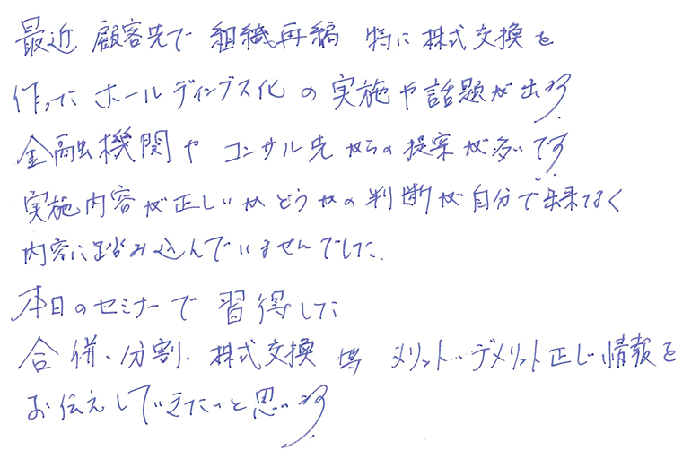 最近 顧客先で 組織再編 特に 株式交換を
作った ホールディングス化の実施や話題が出ます
金融機関や コンサル先からの提案が多いです
実施内容が正しいかどうかの判断が自分で出来なく
内容に踏み込んでいませんでした.
本日のセミナーで 習得した
合併.分割.株式交換 メリット・デメリット正しい情報を
お伝えしていきたいと思います